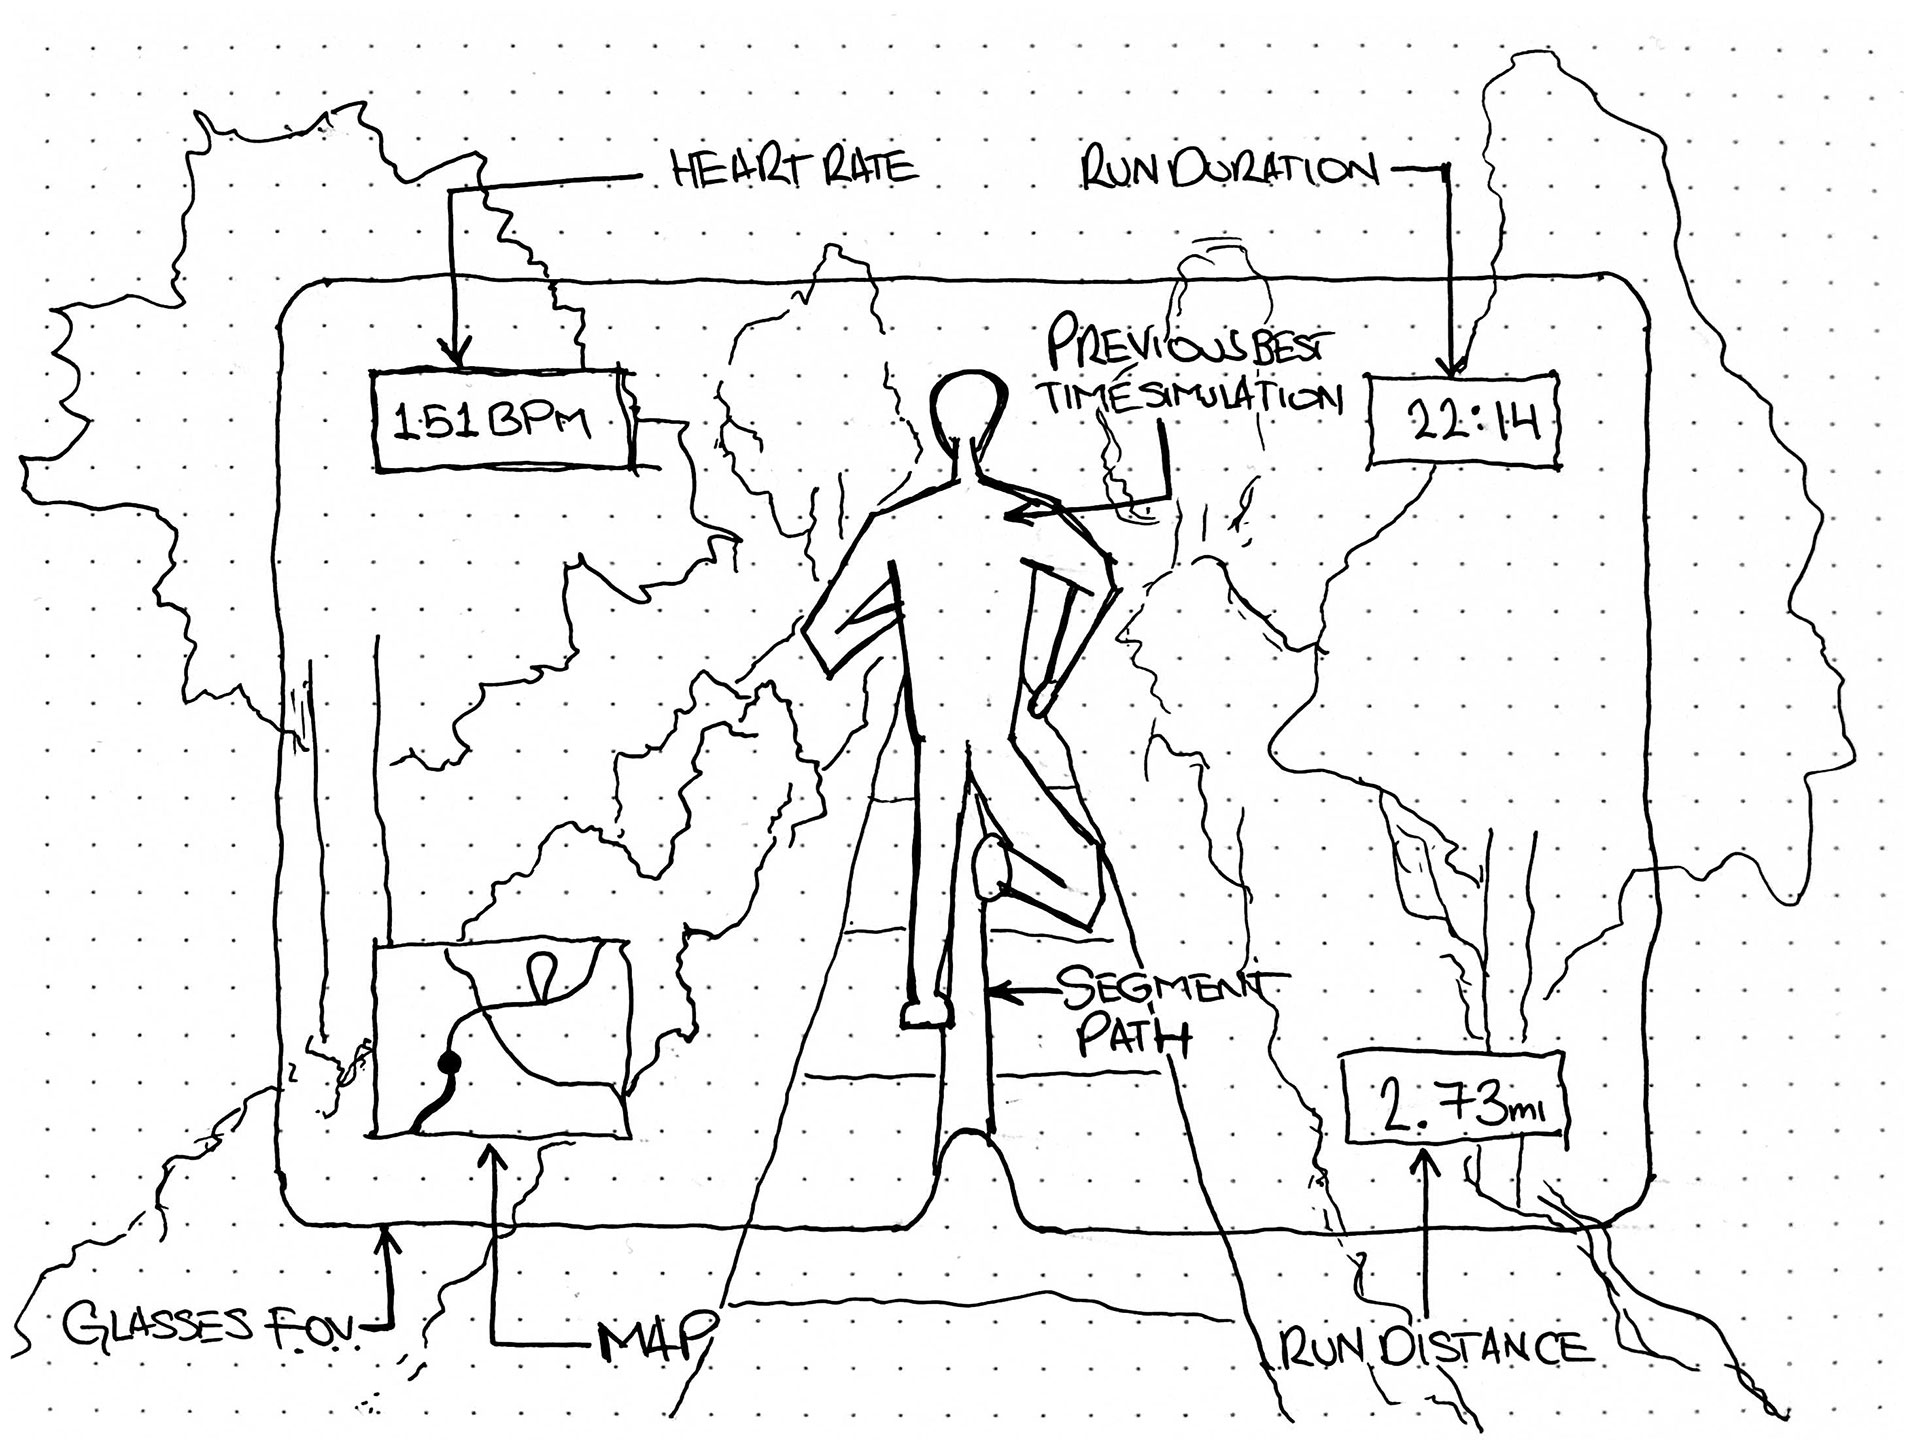 HEART RATE
RUN DURATION
PREVIOUS BEST
TIME SIMULATION
151 BPM
22:14
SEGMENT
PATH
2.73mi
GLASSES F.O.V.
MAP
RUN DISTANCE